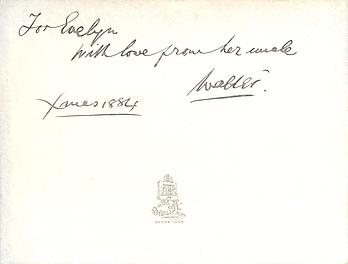 For Evelyn
with love from her uncle
Walter.
Xmas 1884